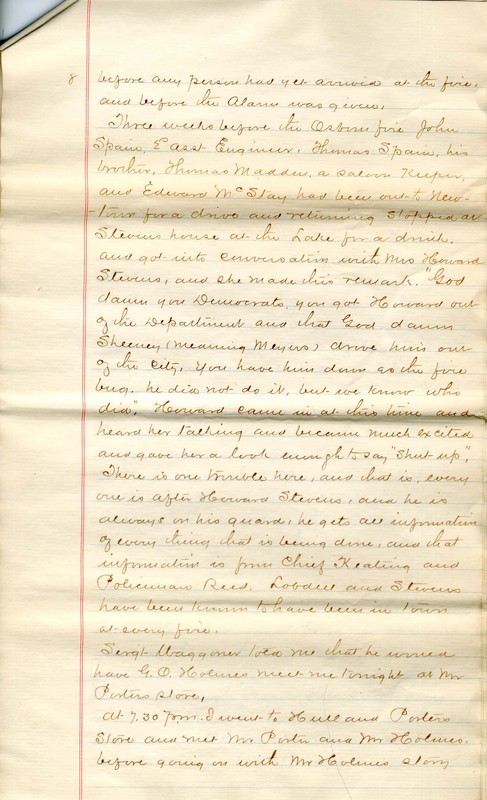 8 before any person had yet arrived at the fire,
and before the Alarm was given.
Three weeks before the Osborn fire John
Spain, 2d asst Engineer, Thomas Spain, his
brother, Thomas Madden, a saloon Keeper,
and Edward McStay had been out to New-
-town for a drive and returning stopped at
Stevens house at the Lake for a drink.
and got into conversation with Mrs Howard
Stevens, and she made this remark. "God
damn you Democrats, you got Howard out
of the Department and that God damn
Sheeney (meaning Meyers) drove him out
of the City. You have him down as the fire
bug. he did not do it, but we know who
did". Howard came in at this time and
heard her talking and became much excited
and gave her a look enough to say "shut up".
There is one trouble here, and that is, every
one is after Howard Stevens, and he is
always on his guard, he gets all information
of every thing that is being done, and that
information is from Chief Keating and
Policeman Reed. Lobdell and Stevens
have been known to have been in town
at every fire.
Sergt Waggoner told me that he would
have G.O. Holmes meet me tonight at Mr
Porters store,
at 7.30 P.m. I went to Hull and Porters
Store and met Mr Porter and Mr Holmes.
before going on with Mr Holmes story